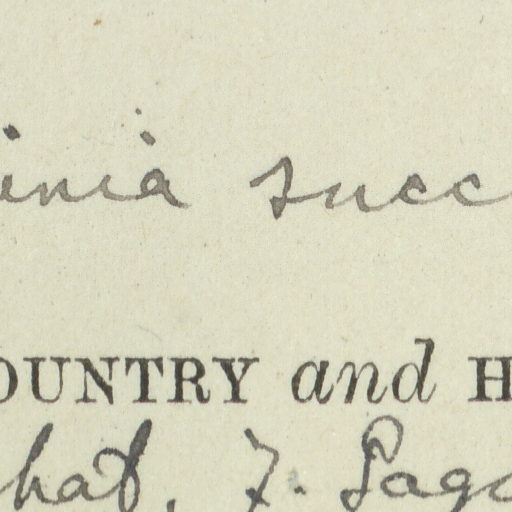 inia succ
OUNTRY and H
hat, 7. Pago